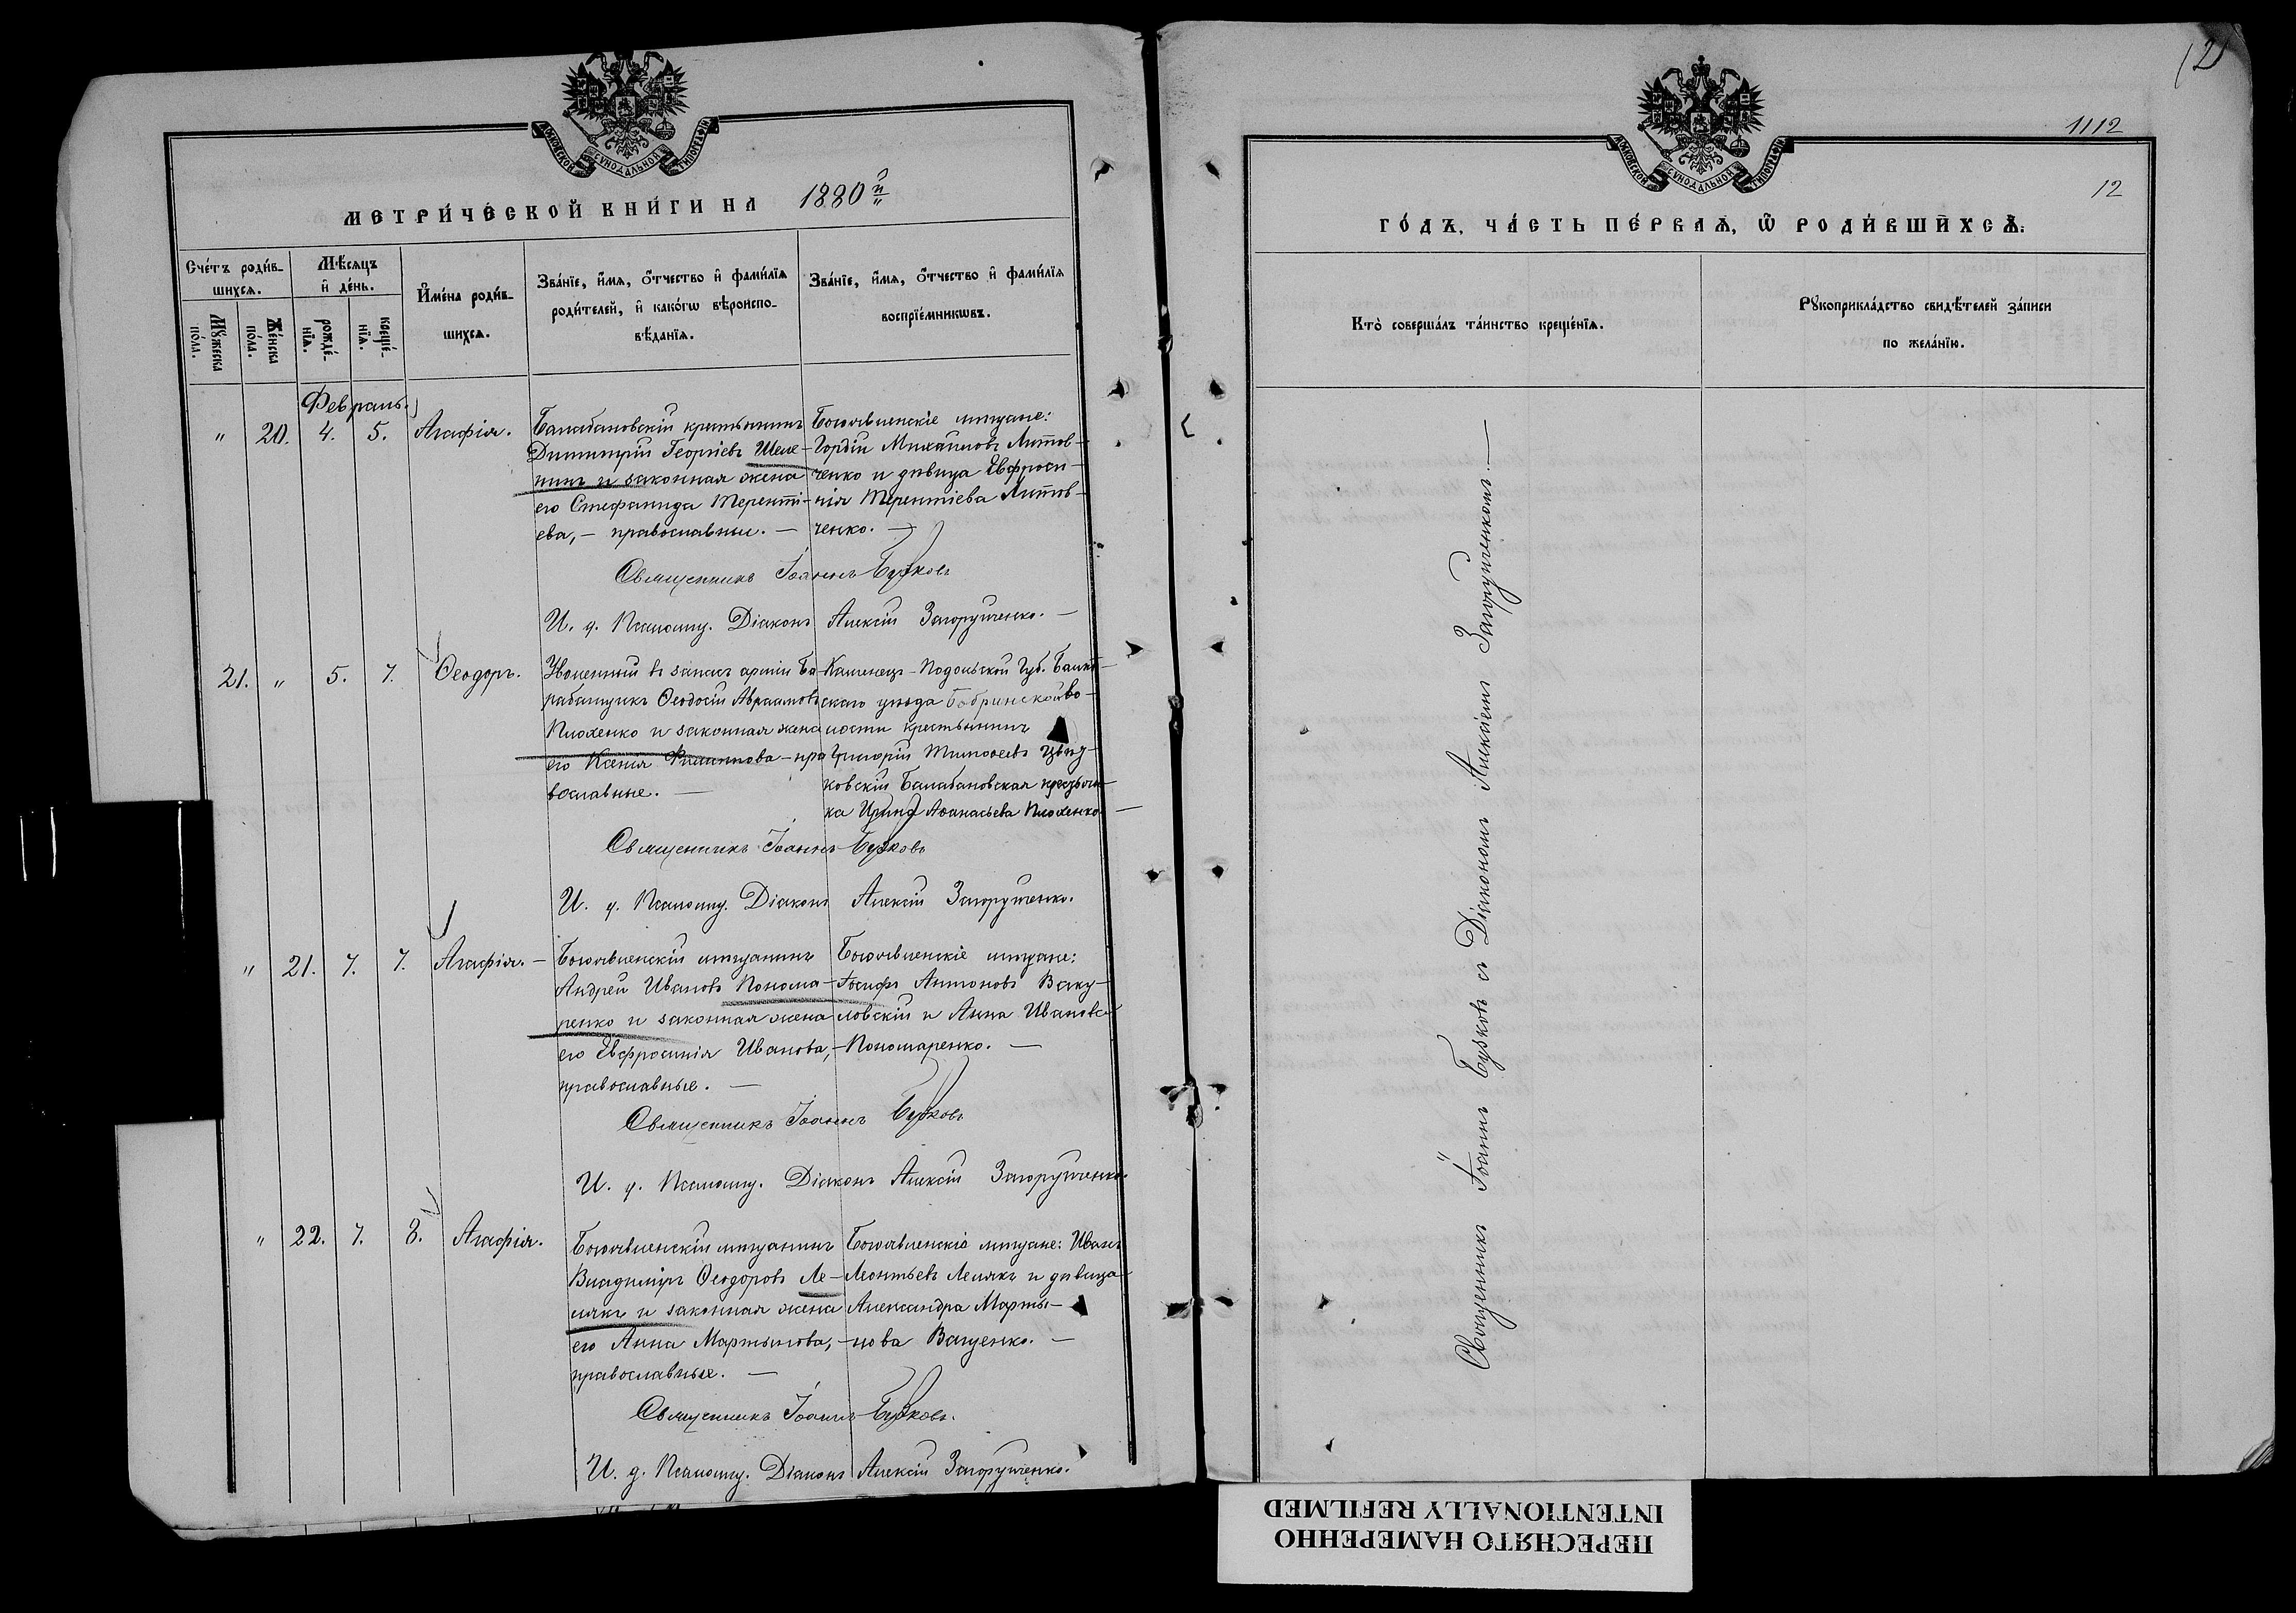 МОСКОВСКОЙ СѴНОДАЛЬНОЙ ТИПОГРАФІИ
МЕТРИ́ЧЕСКОЙ КНИ́ГИ НА 1880й
Сче́тъ роди́в-
шихсѧ.
Мѣ́сѧцъ
и҆ де́нь.
И҆мена̀ роди́в-
шихсѧ.
Зва́нїе, и҆́мѧ, ѻ҆́тчество и҆ фами́лїѧ
роди́телей, и҆ како́гѡ вѣроиспо-
вѣ́данїѧ.
Зва́нїе, и҆́мѧ, ѻ҆́тчество и҆ фами́лїѧ
воспрїе́мникѡвъ.
Мꙋ́жеска
по́ла.
Же́нска
по́ла.
рожде́-
нїѧ.
креще́-
нїѧ.
Февраль.
" 20. 4. 5. Агафія.
Балабановскій крестьянинъ
Димитрій Георгіевъ Шеле-
пинъ и законная жена
его Стефанида Терентi-
ева, — православные. —
Богоявленскіе мѣщане:
Гордій Михаиловъ Литов-
ченко и дѣвица Евфроси-
нія Терентіева Литов-
ченко. —
Священникъ Іоаннъ Бузковъ
И. д. Псаломщ. Діаконъ Алексій Загорульченко. —
21. " 5. 7. Ѳеодоръ.
Уволенный въ запасъ арміи Ба-
рабанщикъ Ѳеодосій Авраамовъ
Плохенко и законная жена
его Ксенія Филиппова — пра
вославные. —
Каменецъ-Подольской Губ. Балт-
скаго уѣзда Бобринской во-
лости крестьянинъ
Григорій Тимоѳеевъ Цвит-
ковскій Балабановская крестьян-
ка Ирина Аѳанасьева Плохенко —
Священникъ Іоаннъ Бузковъ
И. д. Псаломщ. Діаконъ Алексій Загорульченко.
" 21. 7. 7. Агафія. —
Богоявленскій мѣщанинъ
Андрей Ивановъ Понома-
ренко и законная жена
его Евфросинія Иванова, —
православные. —
Богоявленскіе мѣщане:
Іосифъ Антоновъ Ваку-
ловскій и Анна Иванова
Пономаренко. —
Священникъ Іоаннъ Бузковъ
И. д. Псаломщ. Діаконъ Алексій Загорульченко.
" 22. 7. 8. Агафія.
Богоявленскій мѣщанинъ
Владиміръ Ѳеодоровъ Ле-
лякъ и законная жена
его Анна Мартынова, —
православные. —
Богоявленскіе мѣщане: Иванъ
Леонтьевъ Лелякъ и дѣвица
Александра Марты-
нова Ващенко. —
Священникъ Іоаннъ Бузковъ.
И. д. Псаломщ. Діаконъ Алексій Загорульченко.
12
1112
МОСКОВСКОЙ СѴНОДАЛЬНОЙ ТИПОГРАФІИ
12
ГО́ДЪ, ЧА́СТЬ ПЕ́РВАѦ, Ѽ РОДИ́ВШИХСѦ:
Кто̀ соверша́лъ та́инство креще́нїѧ.
Рꙋкоприкла́дство свидѣ́телей за́писи
по жела́нїю.
Священникъ Іоаннъ Бузковъ съ Діакономъ Алексіемъ Загорульченкомъ. —
ПЕРЕСНЯТО НАМЕРЕННО
INTENTIONALLY REFILMED